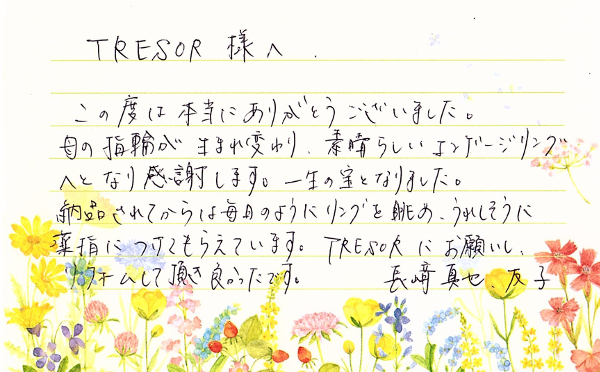 TRESOR 様へ.
この度は本当にありがとうございました。
母の指輪が生まれ変わり、素晴らしいエンゲージリング
へとなり感謝します。一生の宝となりました。
納品されてからは毎日のようにリングを眺め、うれしそうに
薬指につけてもらえています。TRESORにお願いし、
リフォームして頂き良かったです。 長﨑真也、友子